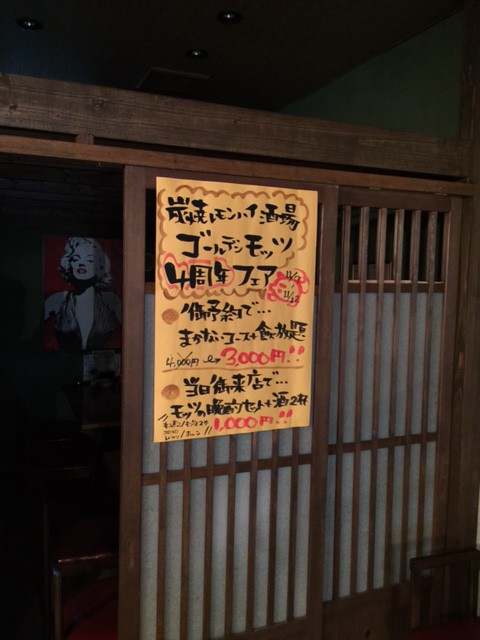 炭焼レモンハイ酒場
ゴールデンモッツ
4周年フェア
11/7
御予約で…
まかないコース+飲み放題
4,000円 3,000円!!
当日御来店で…
モッツの晩酌セット+酒2杯
1,000円!!